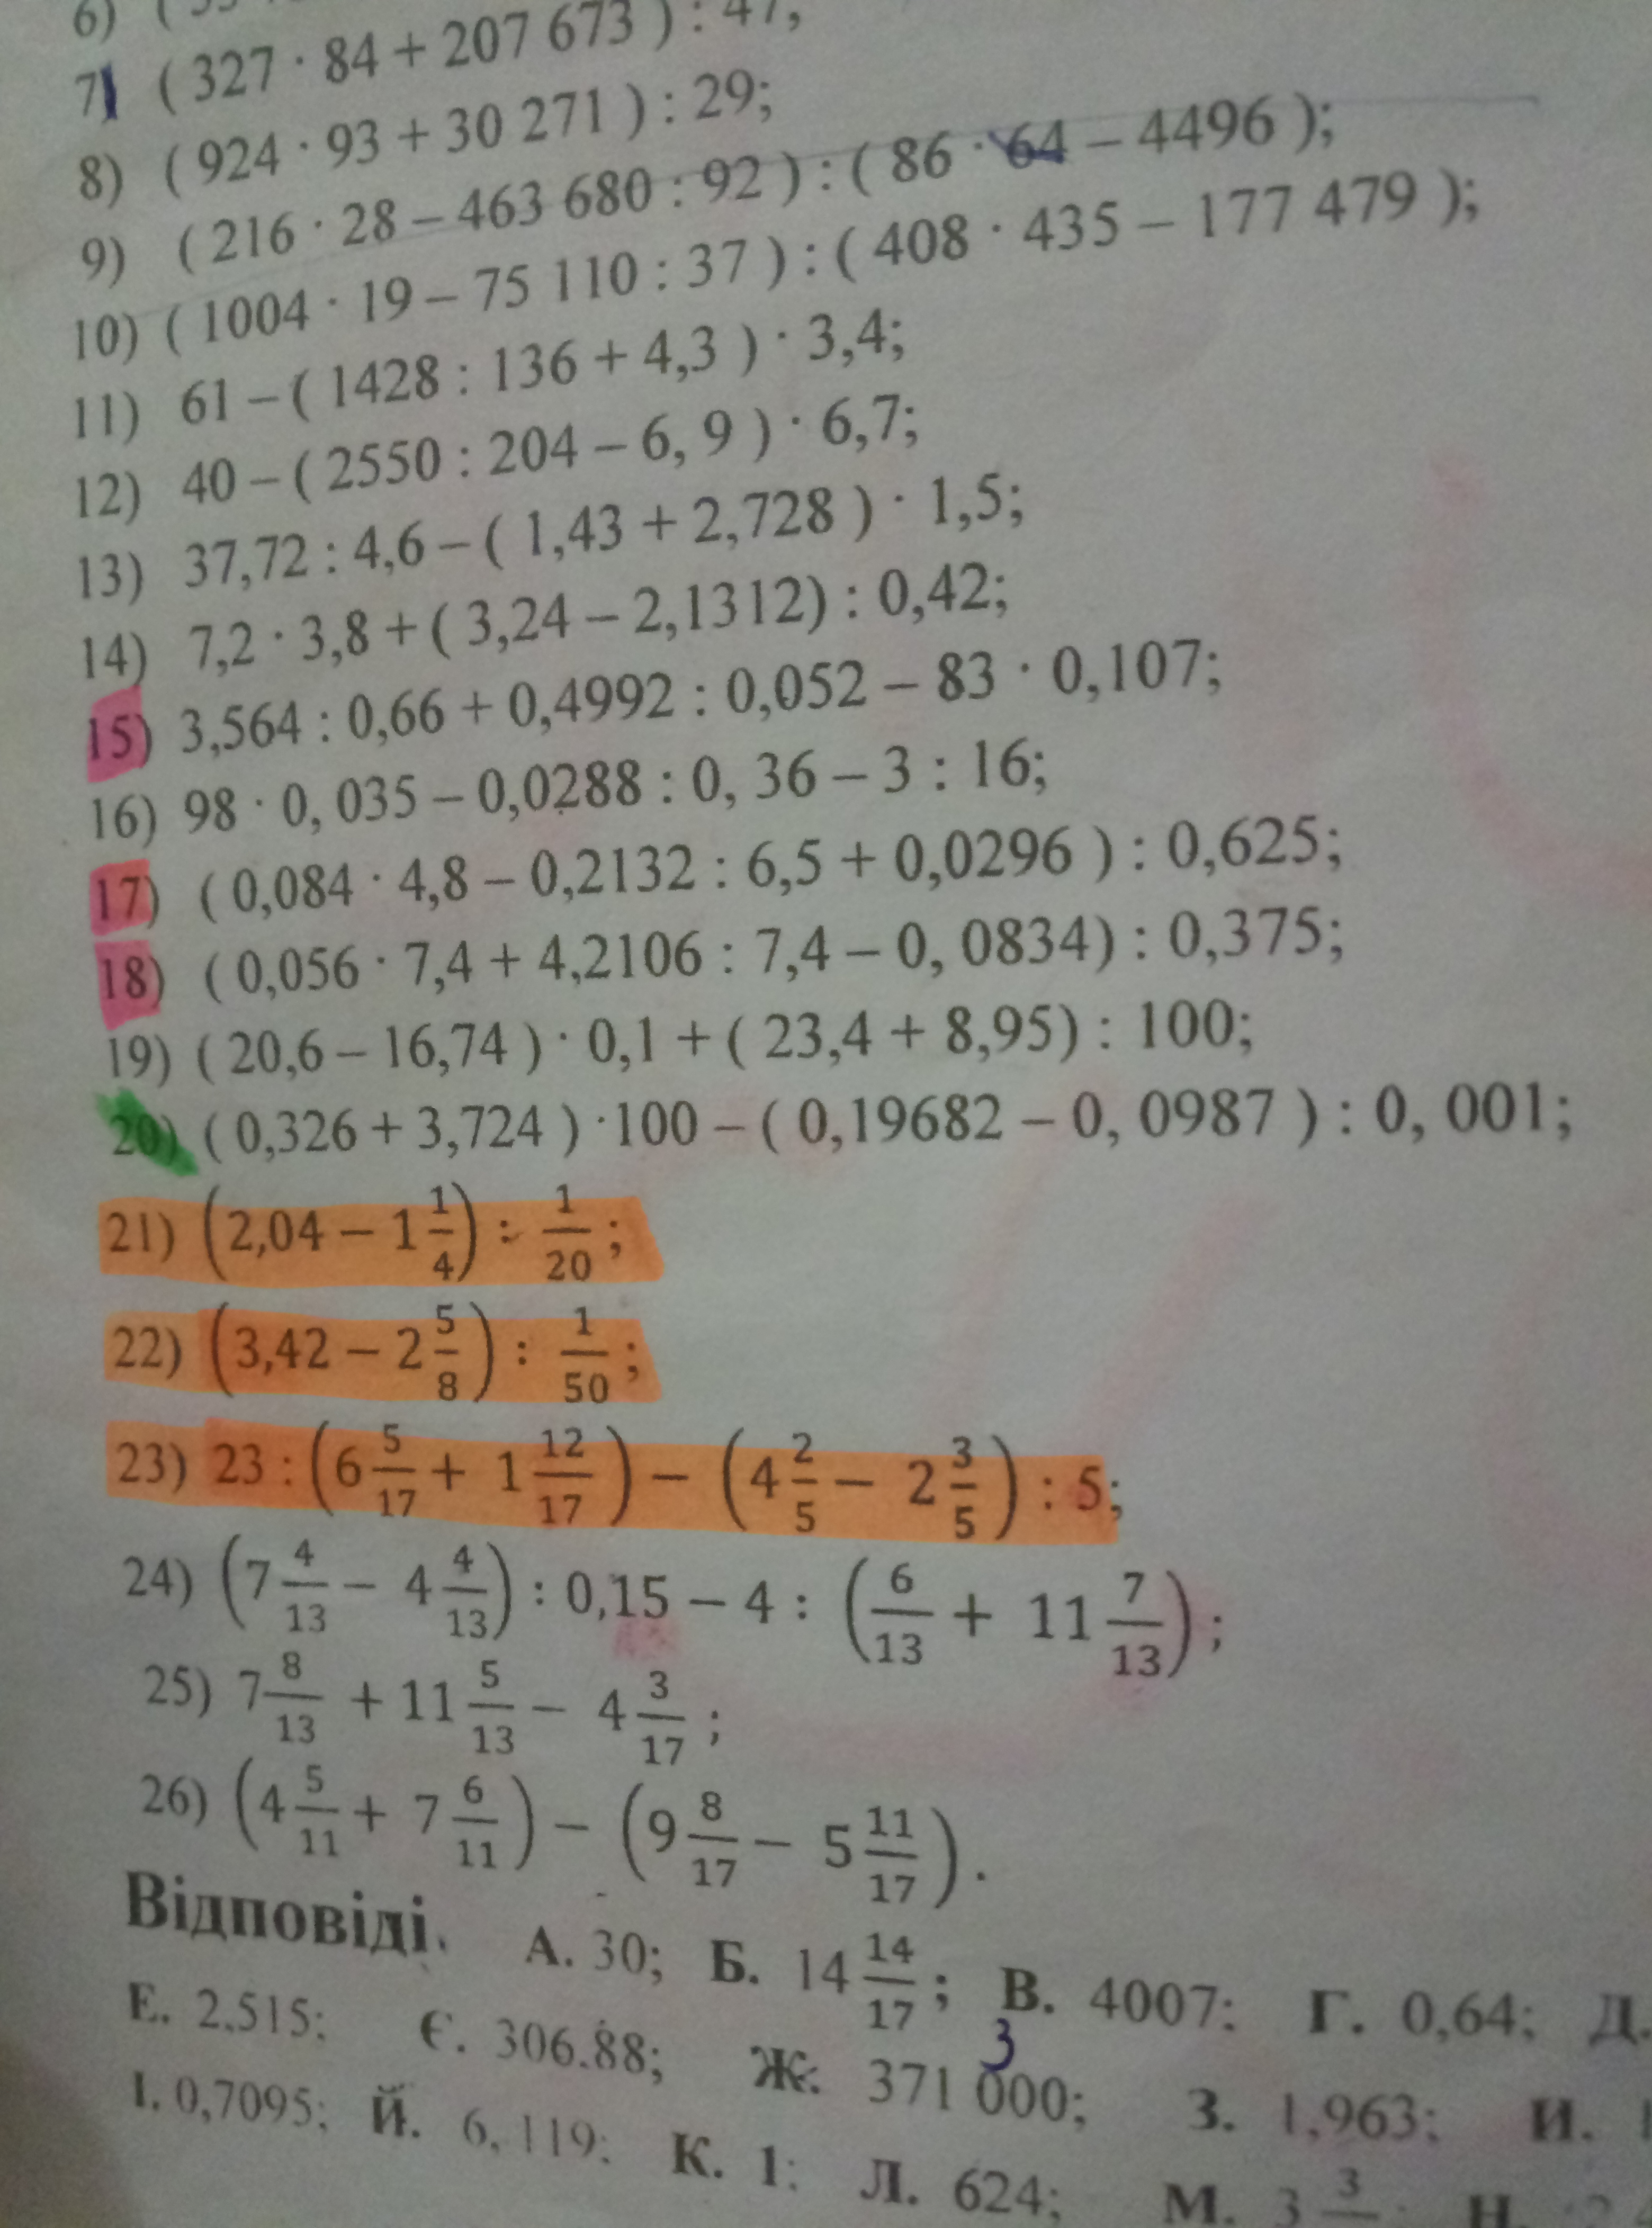 6) (
7) ( 327 · 84 + 207 673 ) : 47;
8) ( 924 · 93 + 30 271 ) : 29;
9) ( 216 · 28 – 463 680 : 92 ) : ( 86 · 64 – 4496 );
10) ( 1004 · 19 – 75 110 : 37 ) : ( 408 · 435 – 177 479 );
11) 61 – ( 1428 : 136 + 4,3 ) · 3,4;
12) 40 – ( 2550 : 204 – 6, 9 ) · 6,7;
13) 37,72 : 4,6 – ( 1,43 + 2,728 ) · 1,5;
14) 7,2 · 3,8 + ( 3,24 – 2,1312) : 0,42;
15) 3,564 : 0,66 + 0,4992 : 0,052 – 83 · 0,107;
16) 98 · 0, 035 – 0,0288 : 0, 36 – 3 : 16;
17) ( 0,084 · 4,8 – 0,2132 : 6,5 + 0,0296 ) : 0,625;
18) ( 0,056 · 7,4 + 4,2106 : 7,4 – 0, 0834) : 0,375;
19) ( 20,6 – 16,74 ) · 0,1 + ( 23,4 + 8,95) : 100;
20) ( 0,326 + 3,724 ) ·100 – ( 0,19682 – 0, 0987 ) : 0, 001;
21) (2,04 − 1 1/4) : 1/20 ;
22) (3,42 − 2 5/8) : 1/50 ;
23) 23 : (6 5/17 + 1 12/17) − (4 2/5 − 2 3/5) : 5;
24) (7 4/13 − 4 4/13) : 0,15 − 4 : (6/13 + 11 7/13) ;
25) 7 8/13 + 11 5/13 − 4 3/17 ;
26) (4 5/11 + 7 6/11) − (9 8/17 − 5 11/17) .
Відповіді. А. 30; Б. 14 14/17 ; В. 4007; Г. 0,64; Д.
3
Е. 2,515; Є. 306,88; Ж. 371 000; З. 1,963; И.
І. 0,7095; Й. 6, 119; К. 1; Л. 624; М. 3 3/ Н.